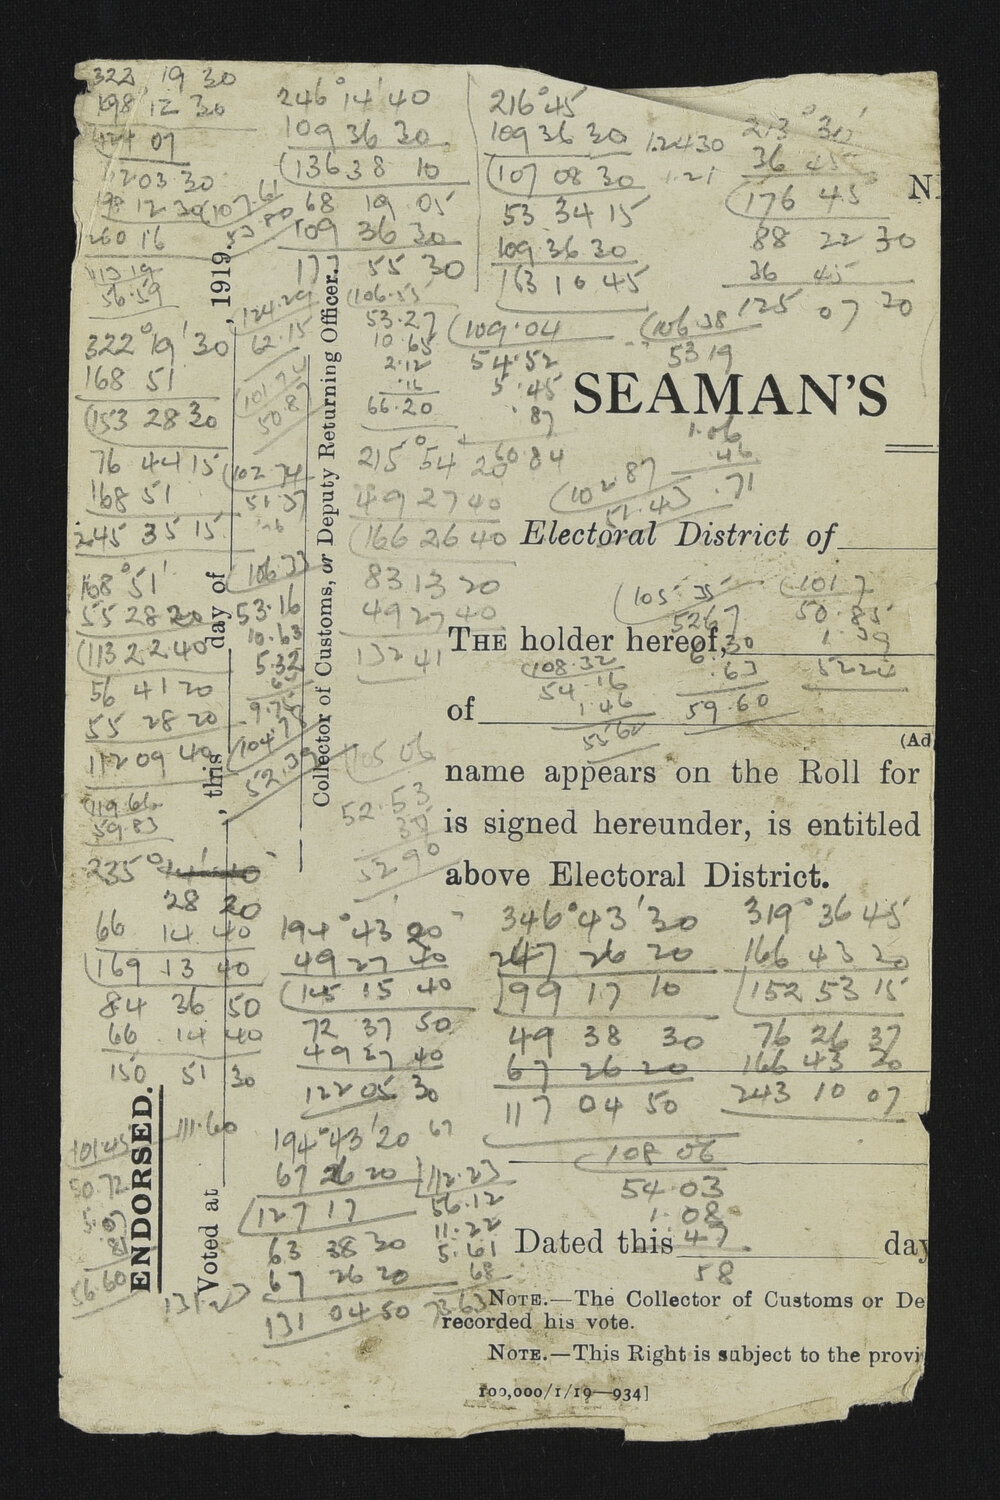 322 19 30
198 12 30
424 07
1203 30
198 12 30
260 16
113 19
56.59
322° 19' 30
168 51
153 28 30
76 44 15
168 51
245 35 15
168° 51'
55 28 20
113 22 40
56 41 20
55 28 20
112 09 40
119 66
59.83
235°
28 20
66 14 40
169 13 40
84 36 50
66 14 40
150 51 30
101.45
50.72
5.07
81
56 60
107.61
53 80
124.29
62.15
50.8
102 74
51.37
106 33
53.16
10.63
5.32
104.7
52.39
111.60
246° 14' 40
109 36 30
136 38 10
68 19 05
109 36 30
177 55 30
106.55
53.27
10 65
2.12
.16
66.20
215° 54' 20
49 27 40
166 26 40
83 13 20
49 27 40
132 41
105 06
52.53
52 90
194° 43' 20
49 27 40
145 15 40
72 37 50
49 27 40
122 05 30
194° 43' 20
67 26 20
127 17
63 38 30
67 26 20
131 04 50
67
112.23
56.12
11.22
5.61
68
73 63
216° 45'
109 36 30
107 08 30
53 34 15
109 36 30
163 10 45
109.04
54.52
5.45
.87
60.84
1.2430
1.21
213° 30'
36 45
176 45
88 22 30
36 45
125 07 20
106.38
53 19
1.06
.46
.71
102.87
51.43
105.35
5267
6.30
.63
59.60
101 7
50.85
1.39
5224
108.32
54.16
1.46
55 62
346° 43' 30
247 26 20
99 17 10
49 38 30
67 26 20
117 04 50
319° 36 45
166 43 20
152 53 15
76 26 37
166 43 20
243 10 07
108 06
54.03
1.08
47
58
, this day of , 1919.
Collector of Customs, or Deputy Returning Officer.
ENDORSED.
Voted at
SEAMAN'S
Electoral District of
THE holder hereof,
of
(Ad
name appears on the Roll for
is signed hereunder, is entitled
above Electoral District.
Dated this day
NOTE.—The Collector of Customs or De
recorded his vote.
NOTE.—This Right is subject to the provi
100,000/1/19—934]